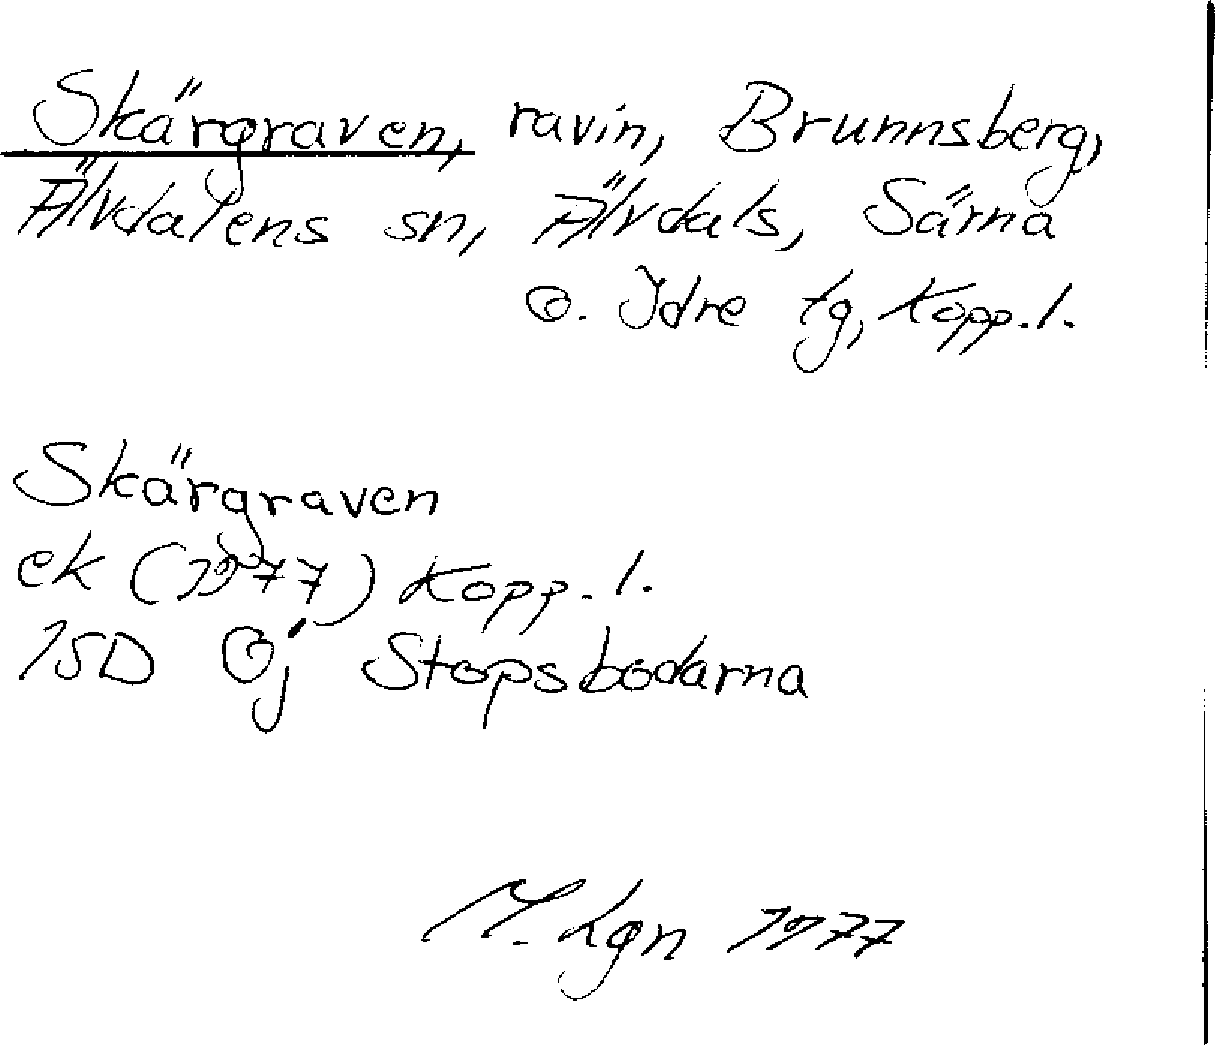 Skärgraven, ravin, Brunnsberg,
Älvdalens sn, Älvdals, Särna
o. Idre tg, Kopp.l.
Skärgraven
ek (1977) Kopp.l.
15D Öj Stopsbodarna
M. Lgn 1977